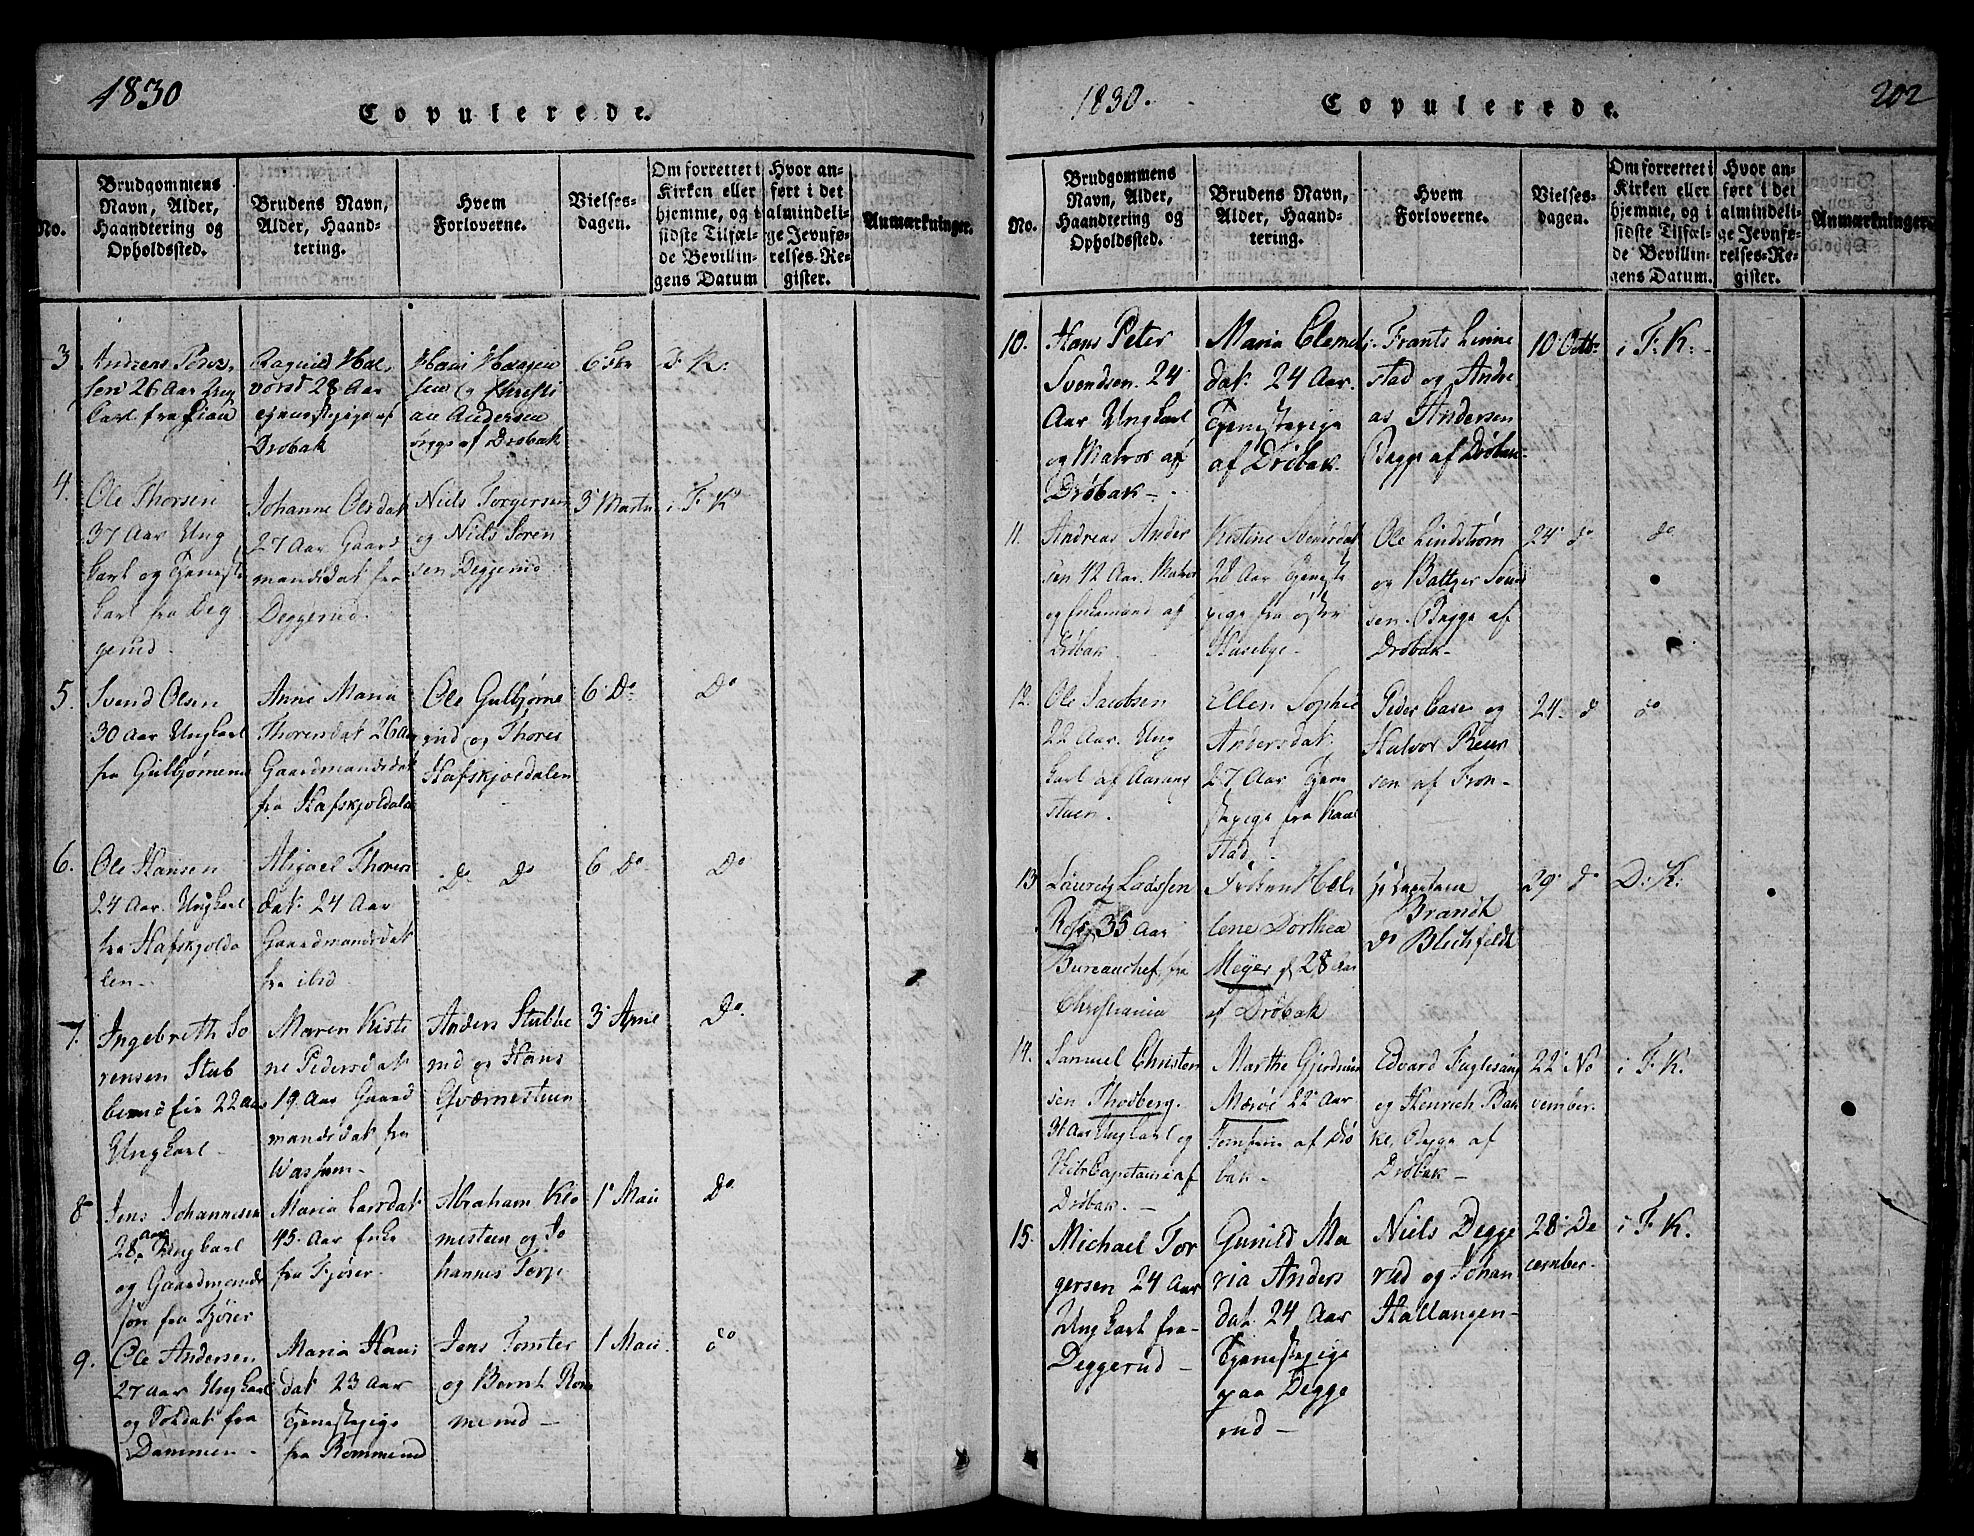 1830
Copulerede.
No.
Brudgommens
Navn, Alder,
Haandtering og
Opholdssted.
Brudens Navn,
Alder, Haand-
tering.
Hvem
Forloverne.
Vielses-
dagen.
Om forrettet i
Kirken eller
hjemme, og i
sidste Tilfæl-
de Bevillin-
gens Datum
Hvor an-
ført i det
almindeli-
ge Jevnfø-
relses-Re-
gister.
Anmærkninger.
3
Andreas
sen 26 Aar Ung
karl fra
Ragnild Hal
vorsd 28 Aar
af
Drøbak
Hans Haagen
sen og Christi
an Andersen
Begge af Drøbak
6 Febr
F. K.
4.
Ole Thorsen
37 Aar Ung
karl og Tjeneste
karl fra Deg
gerud.
Johanne Olsdat
27 Aar Gaard
mandsdat fra
Deggerud.
Niels Torgersen
og Niels Soren
sen Deggerud
3 Marts
i F. K
5.
Svend Olsen
30 Aar Ungkarl
fra Gulbjørnerud
Anne Maria
Thoresdat 26 Aar
Gaardmandsdat
fra Hafskjoldalen
Ole Gulbjørne
rud og Thores
Hafskjoldalen
6 Do
Do
6.
Ole Hansen
24 Aar. Ungkarl
fra Hafskjolda
len.
Abigael Thores
dat. 24 Aar
Gaardmandsdat
fra ibid
Do Do
6 Do
Do
7.
Ingebreth So
rensen Stub
berud 22 Aar
Ungkarl.
Maren Kisti
ne Pedersdat
19 Aar Gaard
mandsdat fra
Wassum
Anders Stubbe
rud og Hans
Qværnesteen
3 April
Do
8
Jens Johannesen
28 Aar Ungkarl
og Gaardmands
søn fra Fjøser
Maria Larsdat
45. Aar Enke
fra Fjøser
Abraham Klo
mesteen og Jo
hannes Torp
1 Maii
Do
9.
Ole Andersen
27 Aar Ungkarl
og Soldat fra
Dammen.
Maria Hans
dat 23 Aar
Tjenestepige
fra Rommerud
Jens Tomter
og Bernt Rom
merud
1 Maii
do
1830.
Copulerede.
202
No.
Brudgommens
Navn, Alder,
Haandtering og
Opholdssted.
Brudens Navn,
Alder, Haand-
tering.
Hvem
Forloverne.
Vielses-
dagen.
Om forrettet i
Kirken eller
hjemme, og i
sidste Tilfæl-
de Bevillin-
gens Datum.
Hvor an-
ført i det
almindeli-
ge Jevnfø-
relses-Re-
gister.
Anmærkninger.
10.
Hans Peter
Svendsen. 24
Aar Ungkarl
og Matros af
Drøbak
Maria Clemets
dat. 24 Aar.
Tjenestepige
af Drøbak.
Frants Linne
stad og Andre
as Andersen
Begge af Drøbak
10 Octb:
i F. K:
11.
Andreas Ander
sen 42 Aar. Matros
og Enkemand af
Drøbak
Kistine Svensdat
28 Aar Tjeneste
pige fra Øster
Huseby
Ole Lindstrøm
og Baltzer Svend
sen. Begge af
Drøbak
24 do
do
12.
Ole Jacobsen
22 Aar. Ung
karl af Aarung
stuen.
Ellen Sophie
Andersdat.
27 Aar Tjene
stepige fra Kaal
stad.
Peder Case og
Halvor Reier
sen af Fron
24. d
do
13
Laurids Ladssen
35 Aar
Bureauchef, fra
Christiania
Frøken Hel
lene Dorthea
Meyer 28 Aar
af Drøbak
Brandt
do Blichfeldt
29 do
D: K.
14.
Samuel Christen
sen Thodberg.
31 Aar Ungkarl og
Skibscaptaine af
Drøbak.
Marthe Gjerdrue
Mærøe 22 Aar
Jomfrue af Drø
bak.
Edvard Fuglesang
og Henrich Bak
ke, Begge af
Drøbak
22 No
vember.
i F. K.
15.
Michael Tor
gersen 24 Aar
Ungkarl fra
Deggerud
Gunild Ma
ria Anders
dat. 24 Aar
Tjenestepige
paa Degge
rud
Niels Degge
rud og Johan
Hallangen
28 De
cember.
i F. K.